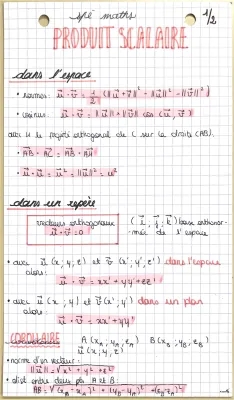 spé maths
1/2
PRODUIT SCALAIRE
dans l'espace
• normes: u⃗ · v⃗ = 1/2 (||u⃗ + v⃗||² - ||u⃗||² - ||v⃗||²)
• cosinus: u⃗ · v⃗ = ||u⃗|| × ||v⃗|| cos (u⃗, v⃗)
avec H le projeté orthogonal de C sur la droite (AB),
• AB⃗ · AC⃗ = AB⃗ · AH⃗
• u⃗ · u⃗ = u⃗² = ||u⃗||² = u²
dans un repère
vecteurs orthogonaux
u⃗ · v⃗ = 0
(i⃗, j⃗, k⃗) base orthonor-
mée de l'espace
• avec u⃗ (x ; y ; z) et v⃗ (x' ; y' ; z') dans l'espace
alors:
u⃗ · v⃗ = xx' + yy' + zz'
• avec u⃗ (x ; y) et v⃗ (x' ; y') dans un plan
alors:
u⃗ · v⃗ = xx' + yy'
COROLLAIRE
A (xA ; yA ; zA) B (xB ; yB ; zB)
u⃗ (x ; y ; z)
• norme d'un vecteur:
||u⃗|| = √x² + y² + z²
• dist entre deux pts A et B:
AB = √(xB - xA)² + (yB - yA)² + (zB - zA)²